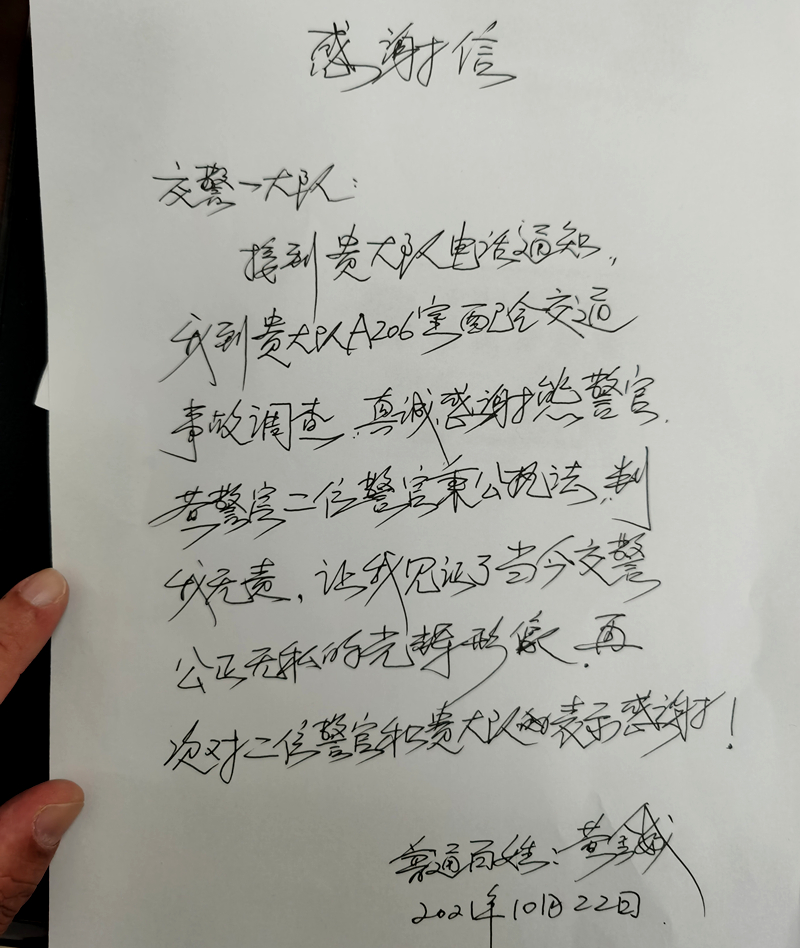 感谢信
交警一大队：
接到贵大队电话通知，
我到贵大队A206室配合交通
事故调查，真诚感谢熊警官、
黄警官二位警官秉公执法，判
我无责，让我见证了当今交警
公正无私的光辉形象，再
次对二位警官和贵大队表示感谢！
普通百姓：黄
2021年10月22日